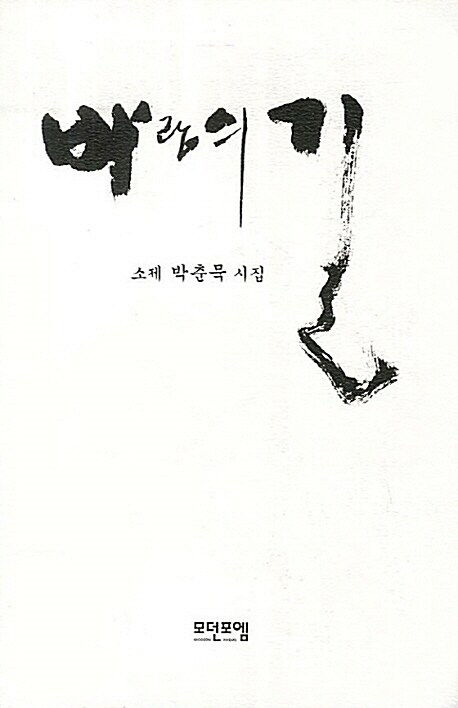 바람의 길
소제 박춘묵 시집
모던포엠